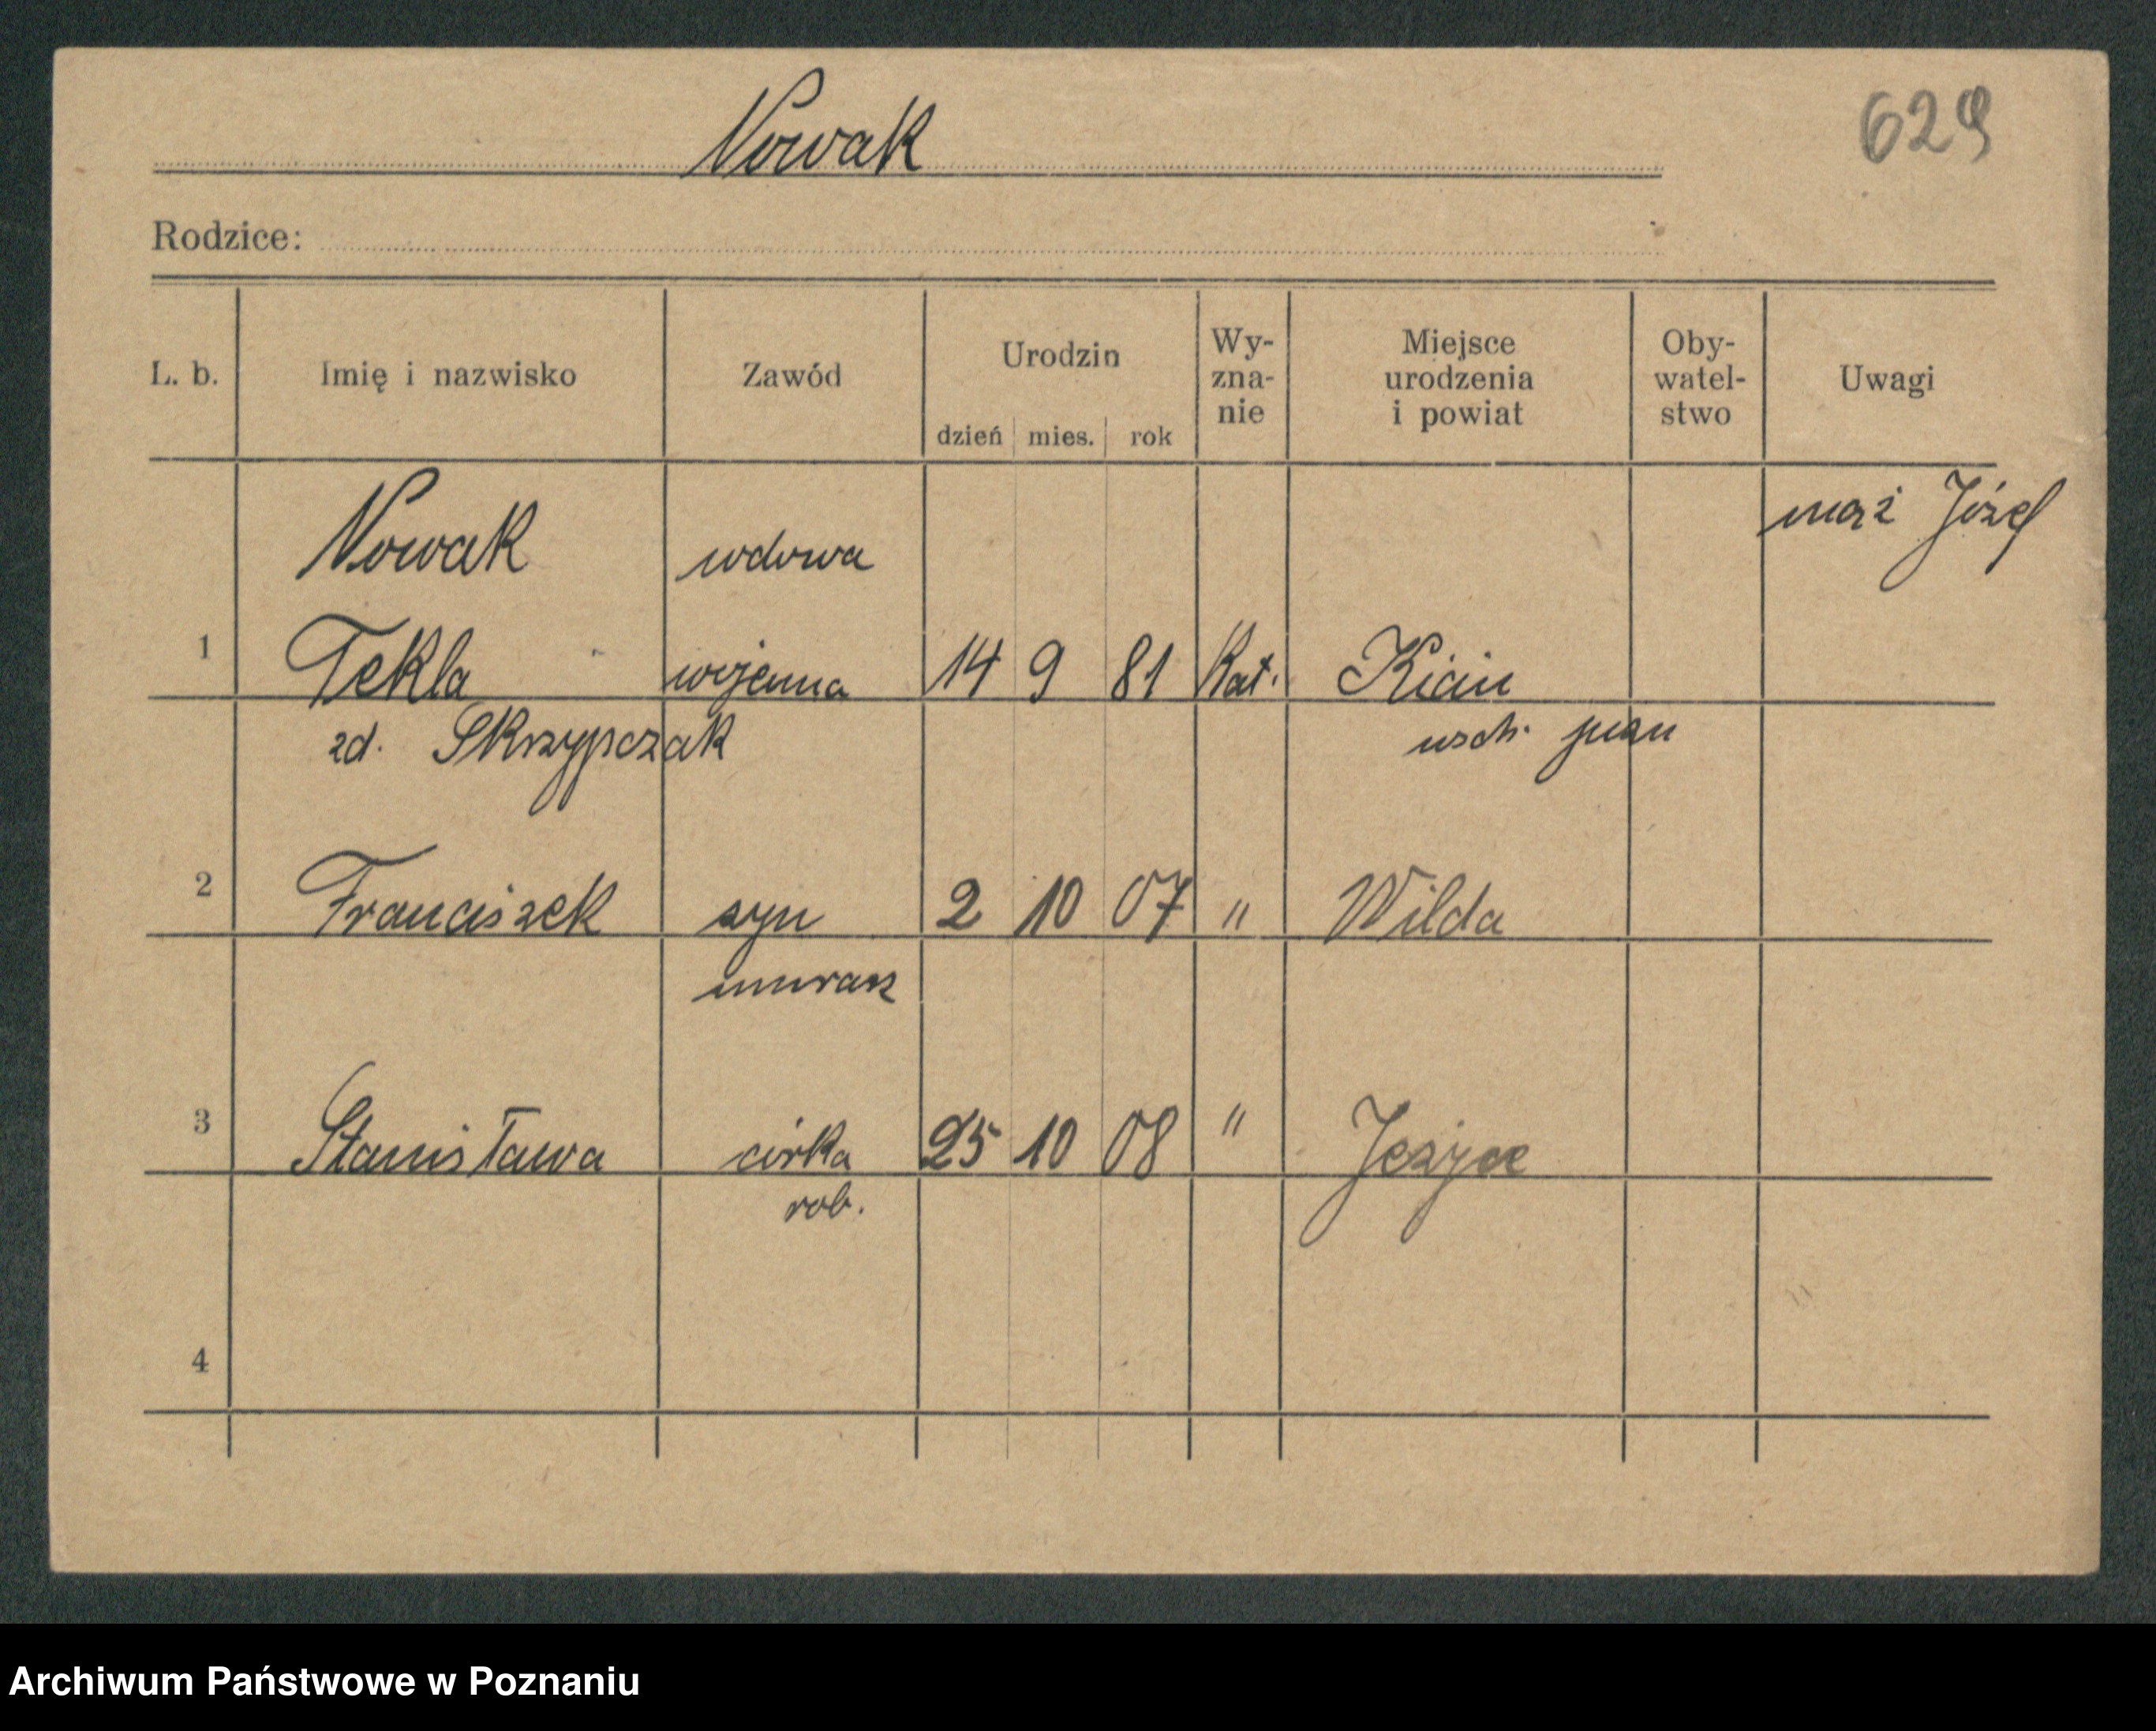 Nowak
629
Rodzice:
L. b. Imię i nazwisko Zawód Urodzin dzień mies. rok Wy-zna-nie Miejsce urodzenia i powiat Oby-watel-stwo Uwagi
Nowak wdowa mąż Józef
1 Tekla wojenna 14 9 81 Kat. Kicin
zd. Skrzypczak wsch.
2 Franciszek syn 2 10 07 " Wilda
murarz
3 Stanisława córka 25 10 08 " Jeżyce
rob.
4
Archiwum Państwowe w Poznaniu